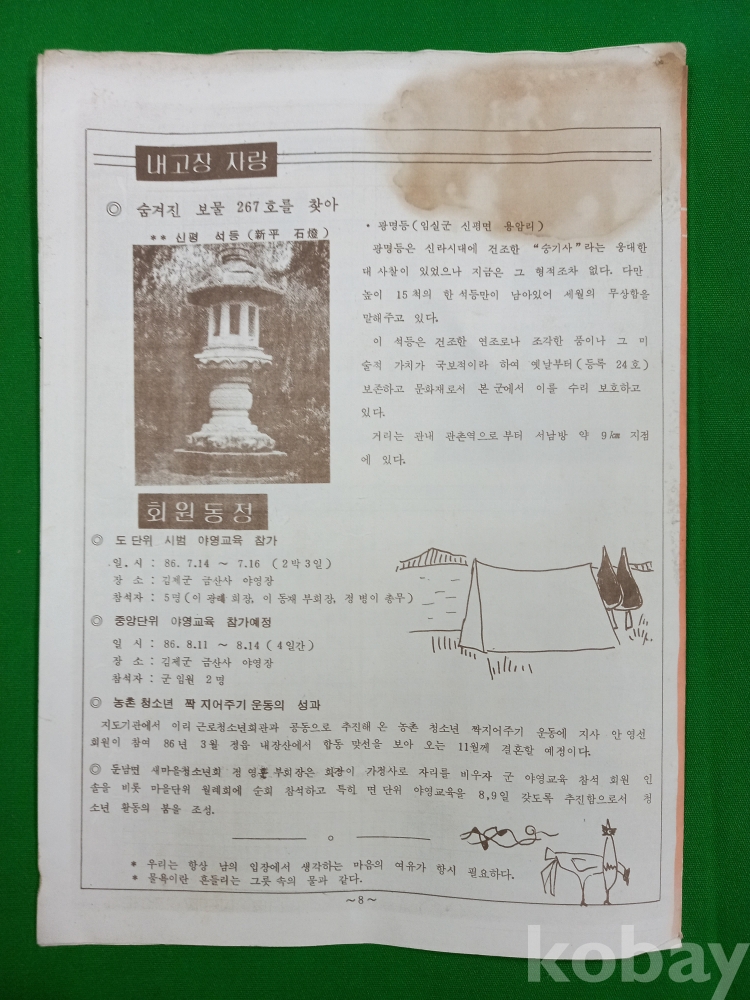 내고장 자랑
◎ 숨겨진 보물 267호를 찾아
** 신평 석등 (新平 石燈)
· 광명등 (임실군 신평면 용암리)
광명등은 신라시대에 건조한 "숭기사"라는 웅대한
대 사찰이 있었으나 지금은 그 형적조차 없다. 다만
높이 15척의 한 석등만이 남아있어 세월의 무상함을
말해주고 있다.
이 석등은 건조한 연조로나 조각한 품이나 그 미
술적 가치가 국보적이라 하여 옛날부터 (등록 24호)
보존하고 문화재로서 본 군에서 이를 수리 보호하고
있다.
거리는 관내 관촌역으로 부터 서남방 약 9㎞ 지점
에 있다.
회원동정
◎ 도 단위 시범 야영교육 참가
일. 시 : 86. 7.14 ~ 7.16 (2박 3일)
장 소 : 김제군 금산사 야영장
참석자 : 5명 (이 광례 회장, 이 동재 부회장, 정 병이 총무)
◎ 중앙단위 야영교육 참가예정
일 시 : 86. 8.11 ~ 8.14 (4일간)
장 소 : 김제군 금산사 야영장
참석자 : 군 임원 2명
◎ 농촌 청소년 짝 지어주기 운동의 성과
지도기관에서 이리 근로청소년회관과 공동으로 추진해 온 농촌 청소년 짝지어주기 운동에 지사 안 영선
회원이 참여 86년 3월 정읍 내장산에서 합동 맞선을 보아 오는 11월께 결혼할 예정이다.
◎ 둔남면 새마을청소년회 정 영훈 부회장은 회장이 가정사로 자리를 비우자 군 야영교육 참석 회원 인
솔을 비롯 마을단위 월례회에 순회 참석하고 특히 면 단위 야영교육을 8,9일 갖도록 추진함으로서 청
소년 활동의 붐을 조성.
* 우리는 항상 남의 입장에서 생각하는 마음의 여유가 항시 필요하다.
* 물욕이란 흔들리는 그릇 속의 물과 같다.
~ 8 ~
kobay